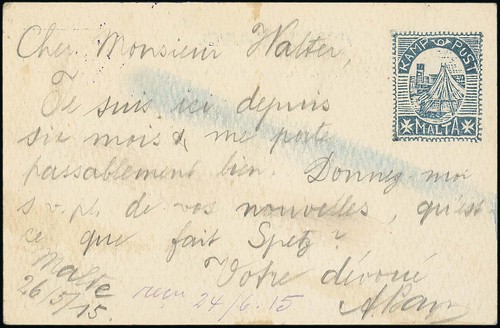 Cher Monsieur Walter,
KAMP POST
MALTA
Je suis ici depuis
six mois & me porte
passablement bien. Donnez-moi
s.v.pl. de vos nouvelles, qu'est
ce que fait Spetz?
Votre dévoué
Malte
26/5/15.
reçu 24/6.15